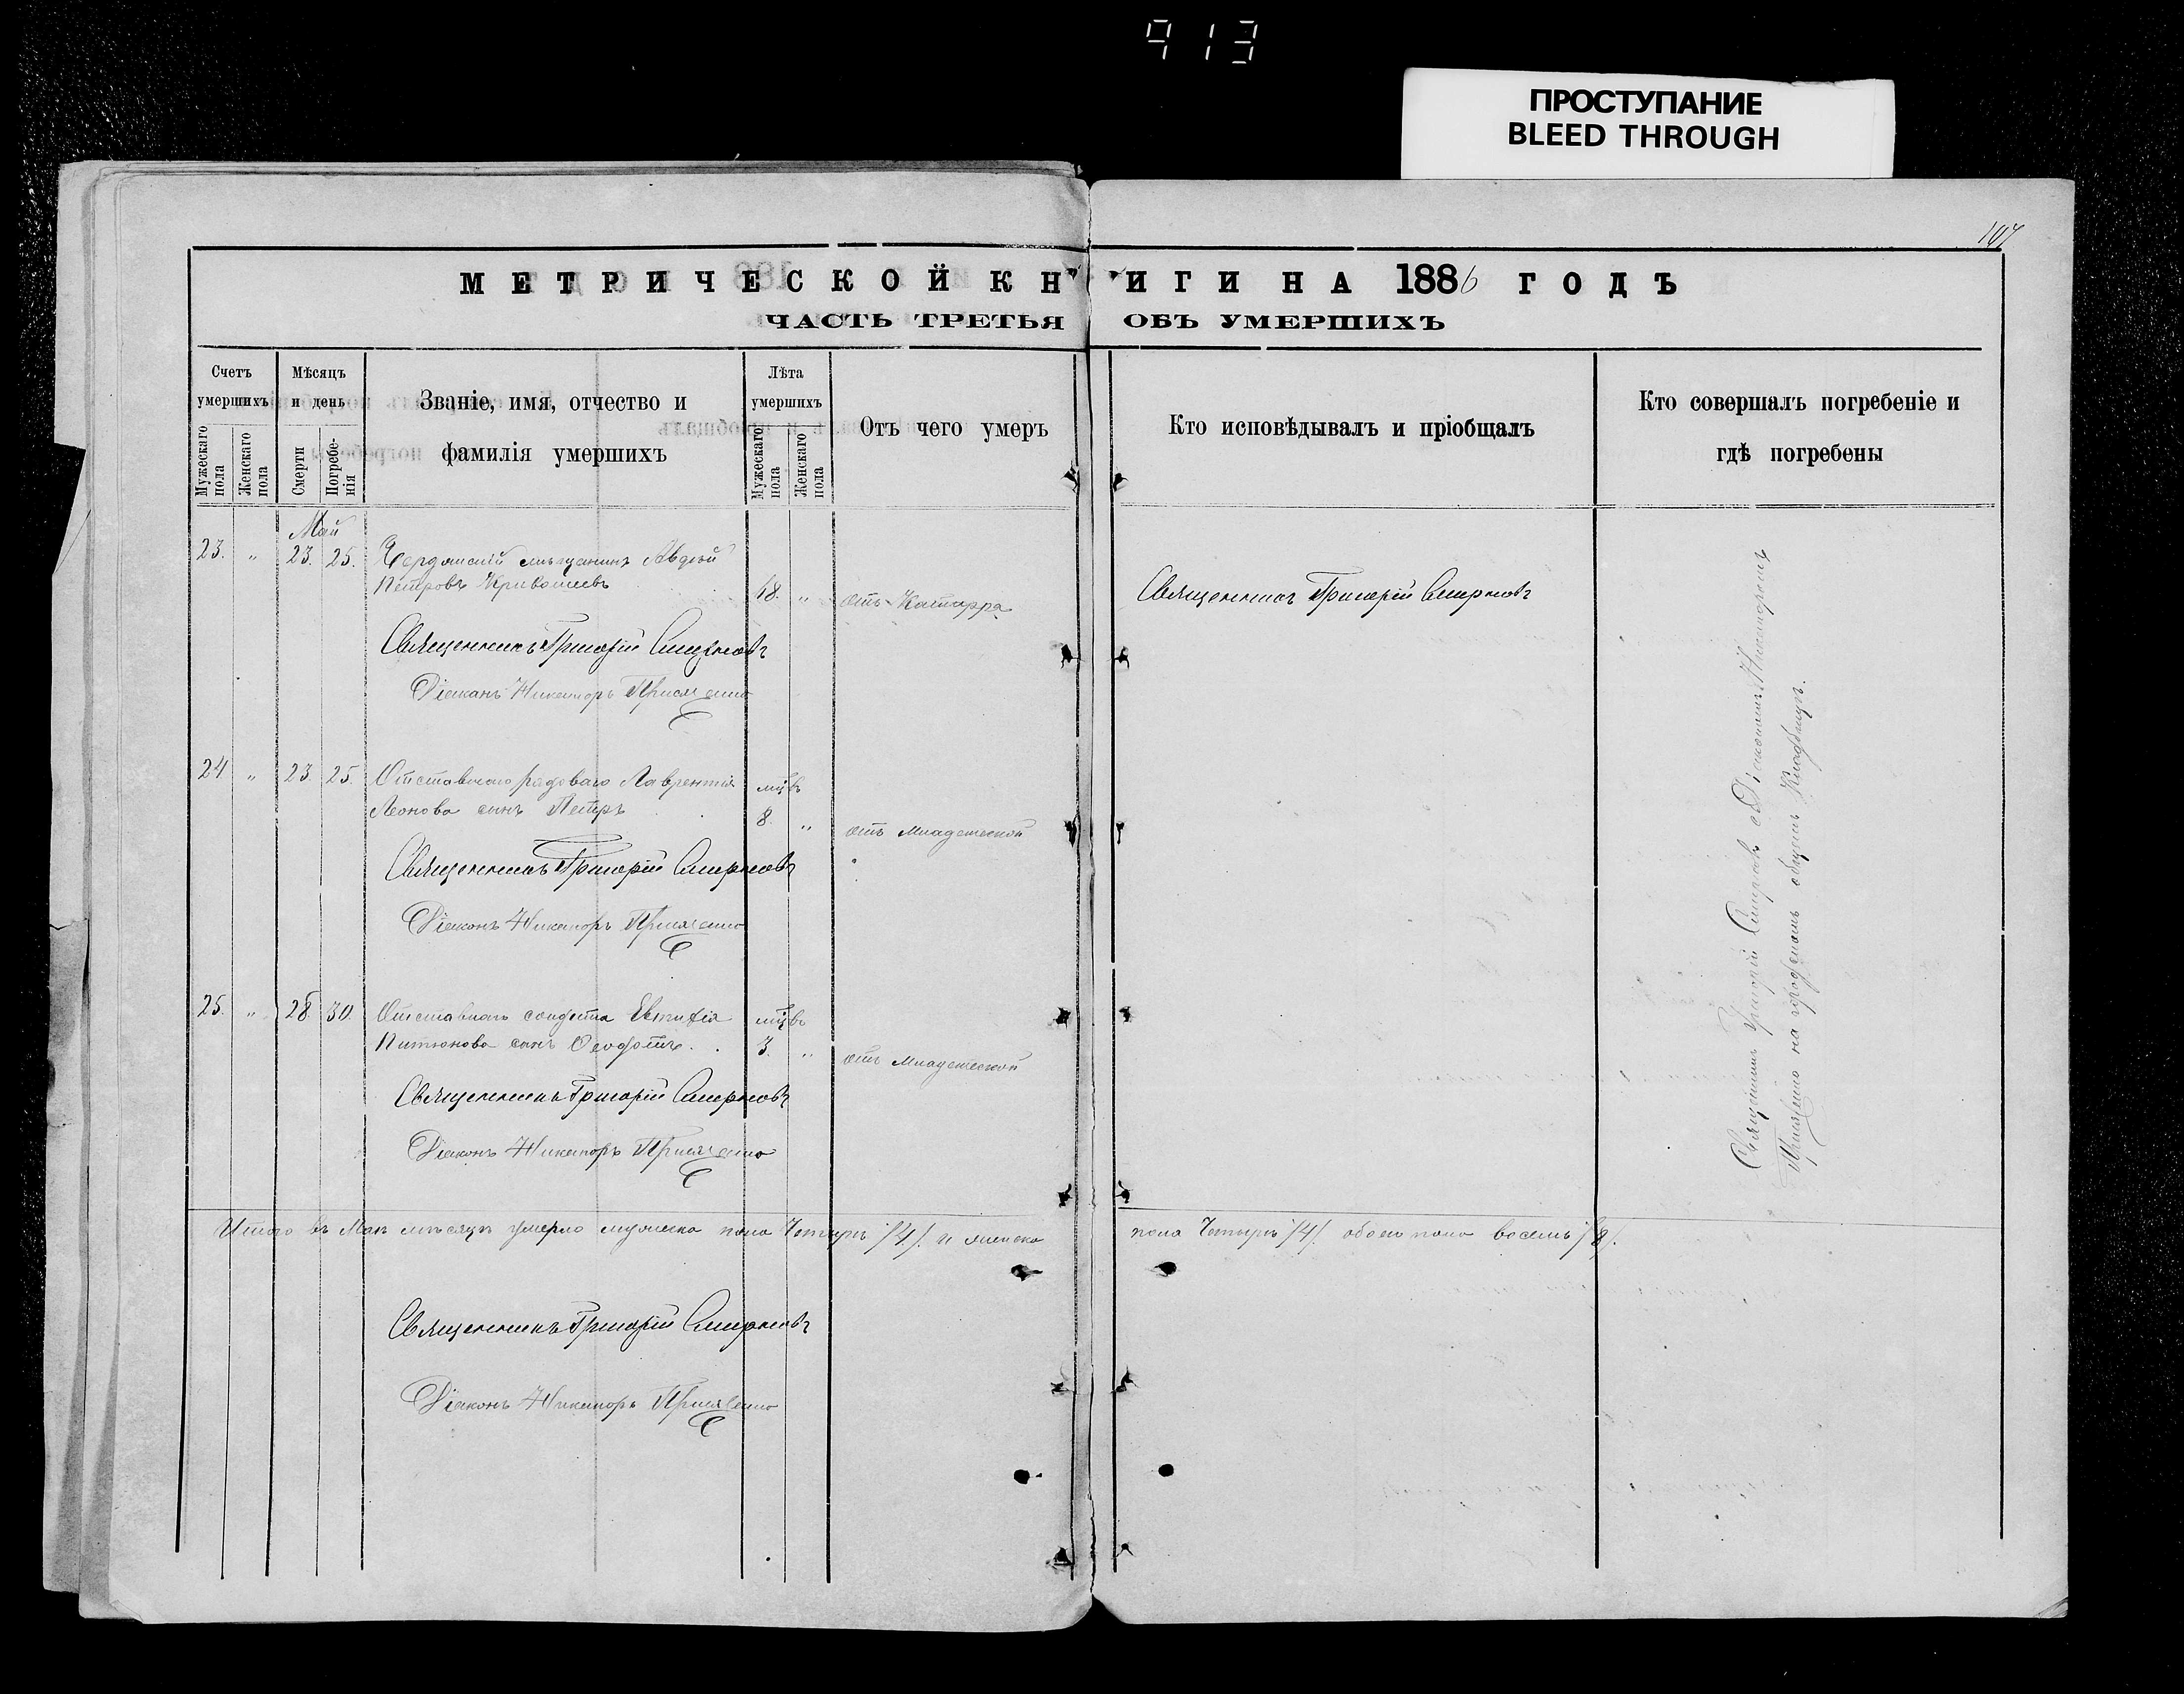 913
ПРОСТУПАНИЕ
BLEED THROUGH
107
МЕТРИЧЕСКОЙ КНИГИ НА 1886 ГОДЪ
ЧАСТЬ ТРЕТЬЯ ОБЪ УМЕРШИХЪ
Счетъ умершихъ
Мужескаго пола
Женскаго пола
Мѣсяцъ и день
Смерти
Погребе-
нія
Званіе, имя, отчество и
фамилія умершихъ
Лѣта умершихъ
Мужескаго пола
Женскаго пола
Отъ чего умеръ
Кто исповѣдывалъ и пріобщалъ
Кто совершалъ погребеніе и
гдѣ погребены
Май
23. " 23. 25. мѣщанинъ Авдѣй
Петровъ Кривошеевъ 48. " отъ Катарра
Священникъ Григорій Смирновъ
Священникъ Григорій Смирновъ
Діаконъ Никаноръ
24 " 23. 25. Отставнаго рядоваго Лаврентія мцвъ
Леонова сынъ Петръ 8. " отъ Младенческой
Священникъ Григорій Смирновъ
Діаконъ Никаноръ
25. " 28. 30. Отставнаго солдата Евтифія мцвъ
сынъ Ѳеодотъ. 3. " отъ Младенческой
Священникъ Григорій Смирновъ
Діаконъ Никаноръ
Священникъ Григорій Смирновъ съ Діакономъ Никаноромъ
на городскомъ общемъ Кладбищѣ.
Итого въ Маѣ мѣсяцѣ умерло мужеска пола Четыре /4/. и женска пола Четыре /4/. обоего пола восемь /8/.
Священникъ Григорій Смирновъ
Діаконъ Никаноръ